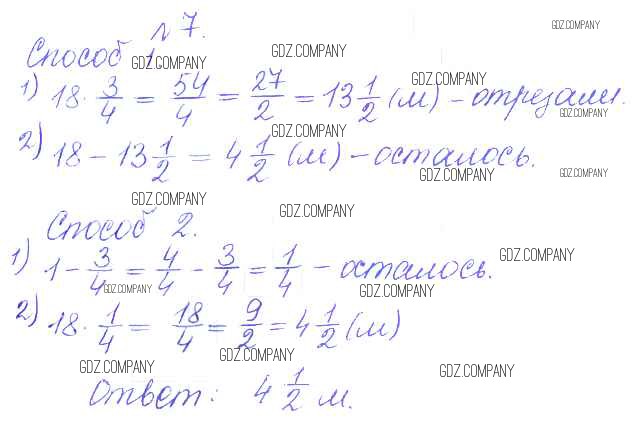 № 7.
GDZ.COMPANY
Способ 1.
GDZ.COMPANY
GDZ.COMPANY
GDZ.COMPANY
1) 18 · 3/4 = 54/4 = 27/2 = 13 1/2 (м) – отрезали.
GDZ.COMPANY
GDZ.COMPANY
2) 18 – 13 1/2 = 4 1/2 (м) – осталось.
GDZ.COMPANY
GDZ.COMPANY
GDZ.COMPANY
GDZ.COMPANY
Способ 2.
1) 1 – 3/4 = 4/4 – 3/4 = 1/4 – осталось.
GDZ.COMPANY
GDZ.COMPANY
GDZ.COMPANY
2) 18 · 1/4 = 18/4 = 9/2 = 4 1/2 (м)
GDZ.COMPANY
GDZ.COMPANY
GDZ.COMPANY
Ответ: 4 1/2 м.